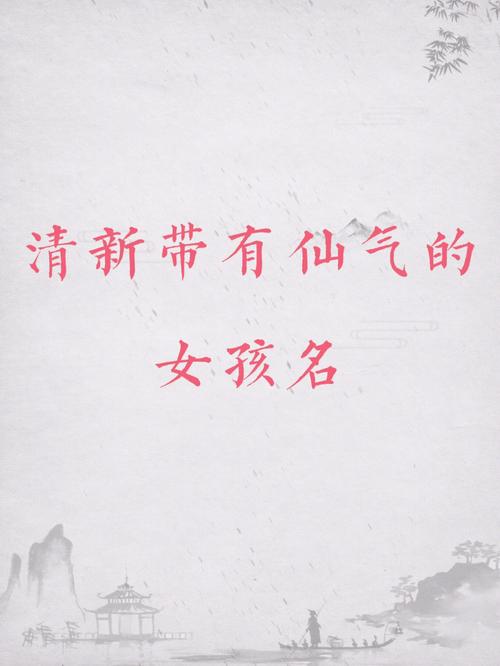 清新带有仙气的
女孩名